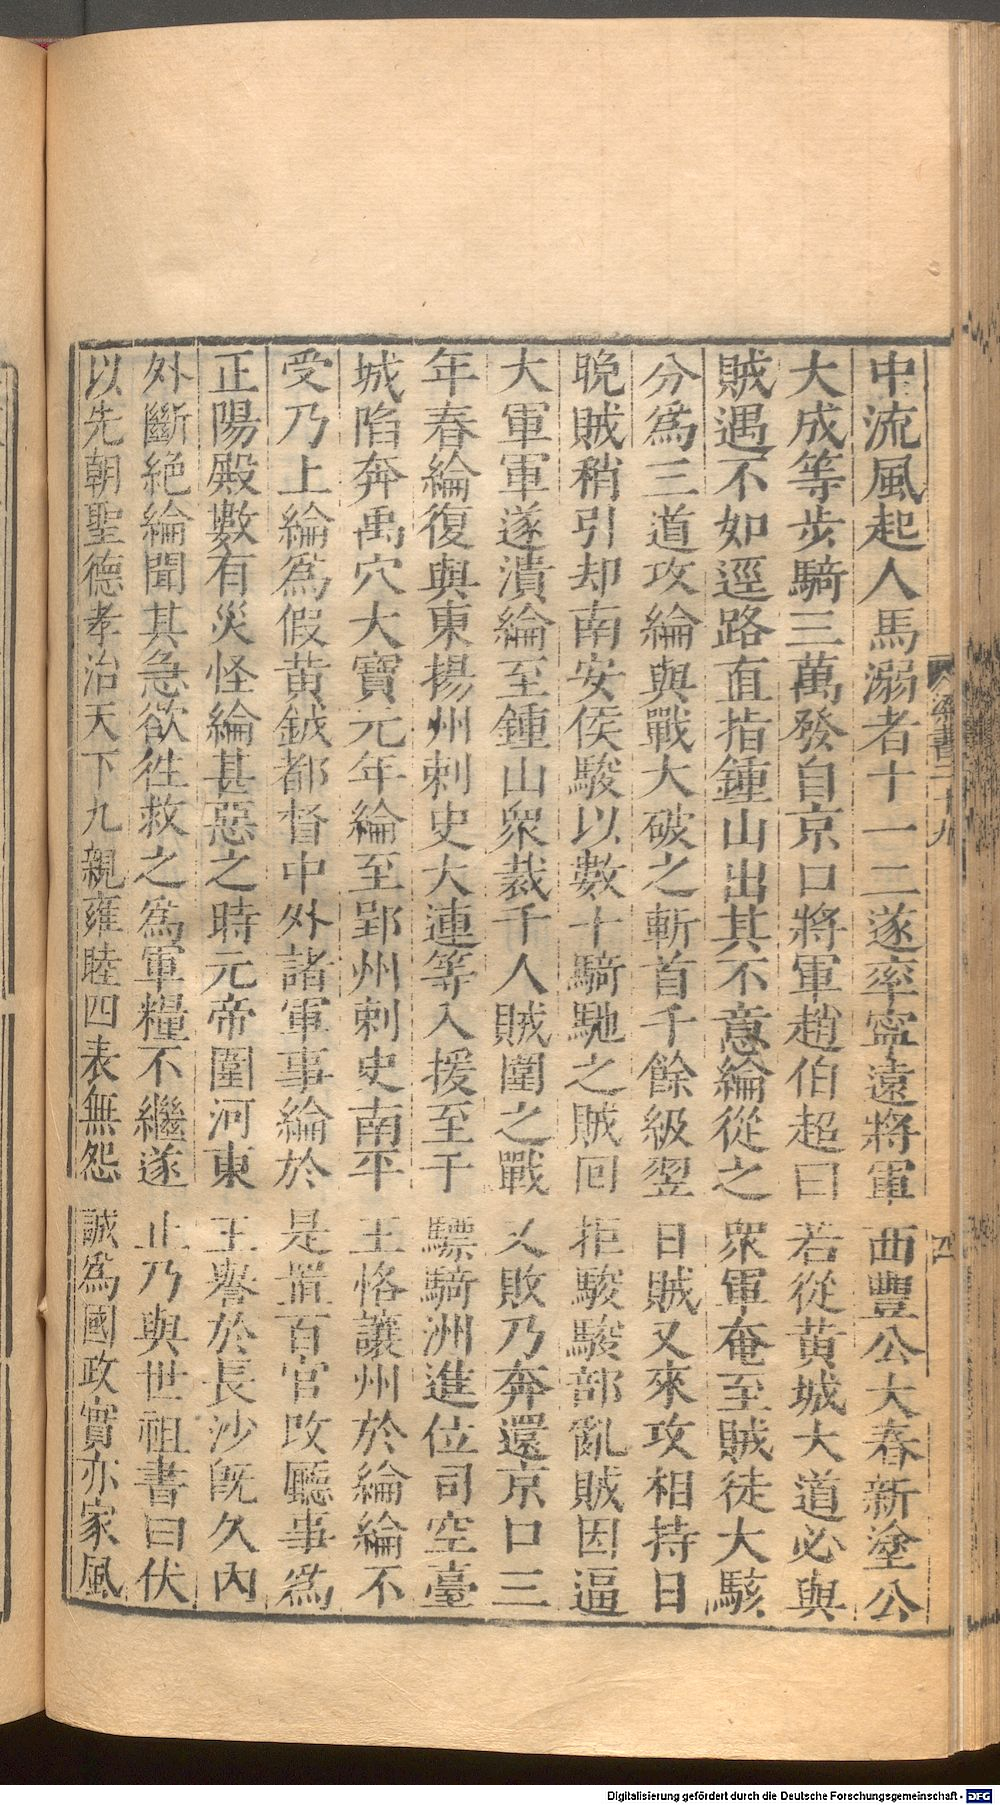 中流風起人馬溺者十一二遂率寧遠將軍西豐公大春新塗公
大成等步騎三萬發自京口將軍趙伯超曰若從黄城大道必與
賊遇不如逕路直指鍾山出其不意綸從之衆軍奄至賊徒大駭
分爲三道攻綸與戰大破之斬首千餘級翌日賊又來攻相持日
晚賊稍引却南安侯駿以數十騎馳之賊回拒駿駿部亂賊因逼
大軍軍遂潰綸至鍾山衆裁千人賊圍之戰又敗乃奔還京口三
年春綸復與東揚州刺史大連等入援至于驃騎洲進位司空臺
城陷奔禹穴大寶元年綸至郢州刺史南平王恪讓州於綸綸不
受乃上綸爲假黄鉞都督中外諸軍事綸於是置百官改廳事爲
正陽殿數有災怪綸甚惡之時元帝圍河東王譽於長沙旣久內
外斷絕綸聞其急欲往救之爲軍糧不繼遂止乃與世祖書曰伏
以先朝聖德孝治天下九親雍睦四表無怨誠爲國政實亦家風
梁書二十九
四
Digitalisierung gefördert durch die Deutsche Forschungsgemeinschaft - DFG